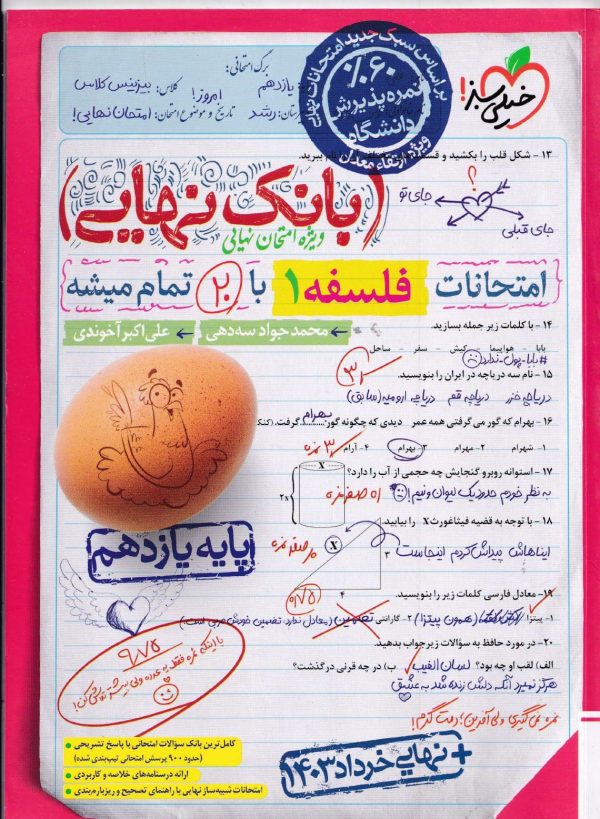 بر اساس سبک جدید امتحانات نهایی
۶۰٪
نمره پذیرش
دانشگاه
ویژه ارتقاء معدل
خیلی سبز!
برگ امتحانی:
یازدهم
کلاس: بیزینس کلاس
امروز!
تاریخ و موضوع امتحان: امتحان نهایی!
رشد
۱۳ - شکل قلب را بکشید و ببرید.
؟
جای تو
جای قبلی
(بانک نهایی)
ویژه امتحان نهایی
امتحانات فلسفه ۱ با ۲۰ تمام میشه
محمدجواد سه‌دهی ← علی‌اکبر آخوندی
۱۴ - با کلمات زیر جمله بسازید.
بابا - هواپیما - کیش - سفر - ساحل
#بابا-پول-ندارد
۱۵ - نام سه دریاچه در ایران را بنویسید.
دریاچه خزر دریاچه قم دریاچه ارومیه (سابق)
۱۶ - بهرام که گور می گرفتی همه عمر دیدی که چگونه گور بهرام گرفت.
۱- شهرام ۲- مهرام ۳- بهرام ۴- آرام
۳ نمره
۱۷ - استوانه روبرو گنجایش چه حجمی از آب را دارد؟
به نظر خودم حدود یک لیوان و نیم!
X
۲x
۱۸ - با توجه به قضیه فیثاغورث X را بیابید.
ایناهاش پیداش کردم اینجاست
X
۳
۴
۱۹- معادل فارسی کلمات زیر را بنویسید.
۱- پیتزا (همون پیتزا) ۲- گارانتی تضمین (معادل ندارد. تضمین خودش عربی است.)
۲۰- در مورد حافظ به سؤالات زیر جواب بدهید.
الف) لقب او چه بود؟ لسان الغیب ب) در چه قرنی در گذشت؟
هرگز نمیرد آنکه دلش زنده شد به عشق
پایه یازدهم
۹/۷۵
نمره نمی‌گیری ولی آفرین! دمت گرم!
کامل‌ترین بانک سؤالات امتحانی با پاسخ تشریحی
(حدود ۹۰۰ پرسش امتحانی تیپ‌بندی شده)
ارائه درسنامه‌های خلاصه و کاربردی
امتحانات شبیه‌ساز نهایی با راهنمای تصحیح و ریزبارم‌بندی
+ نهایی خرداد ۱۴۰۳